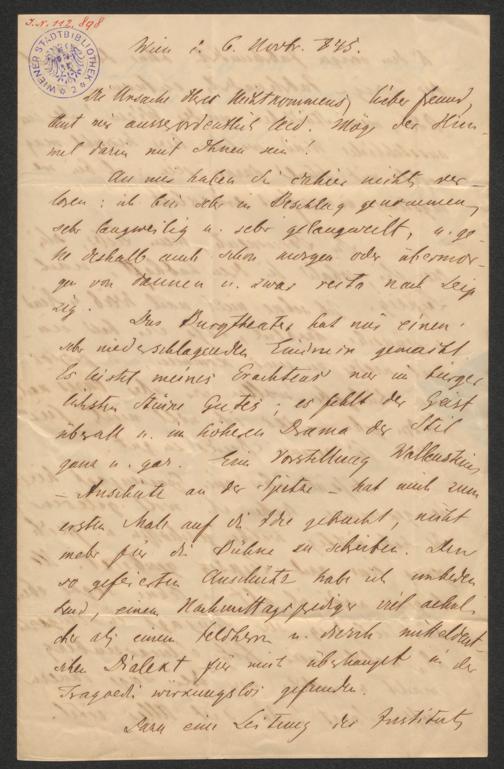 J. N. 112.898
WIENER STADTBIBLIOTHEK
Wien d. 6. Novbr. 845.
Die Ursache Ihres Nichtkommens, lieber Freund,
thut mir ausserordentlich leid. Möge der Him-
mel darin mit Ihnen sein!
An mir haben Sie dahier nichts ver
loren: ich bin sehr in Beschlag genommen,
sehr langweilig u. sehr gelangweilt, u. ge
he deshalb auch schon morgen oder übermor-
gen von dannen u. zwar recta nach Leip
zig.
Das Burgtheater hat mir einen
sehr niederschlagenden Eindruck gemacht.
Es leistet meines Erachtens nur im bürger
lichsten Genre Gutes; es fehlt der Geist
überall u. im höheren Drama der Stil
ganz u. gar. Eine Vorstellung Wallensteins
– Anschütz an der Spitze – hat mich zum
ersten Male auf die Idee gebracht, nicht
mehr für die Bühne zu schreiben. Den
so gefeierten Anschütz habe ich unbedeu
tend, einem Nachmittagsprediger viel aehnli
cher als einem Feldherrn u. durch mitteldeut
schen Dialekt für mich überhaupt in der
Tragoedie wirkungslos gefunden.
Dazu eine Leitung des Instituts